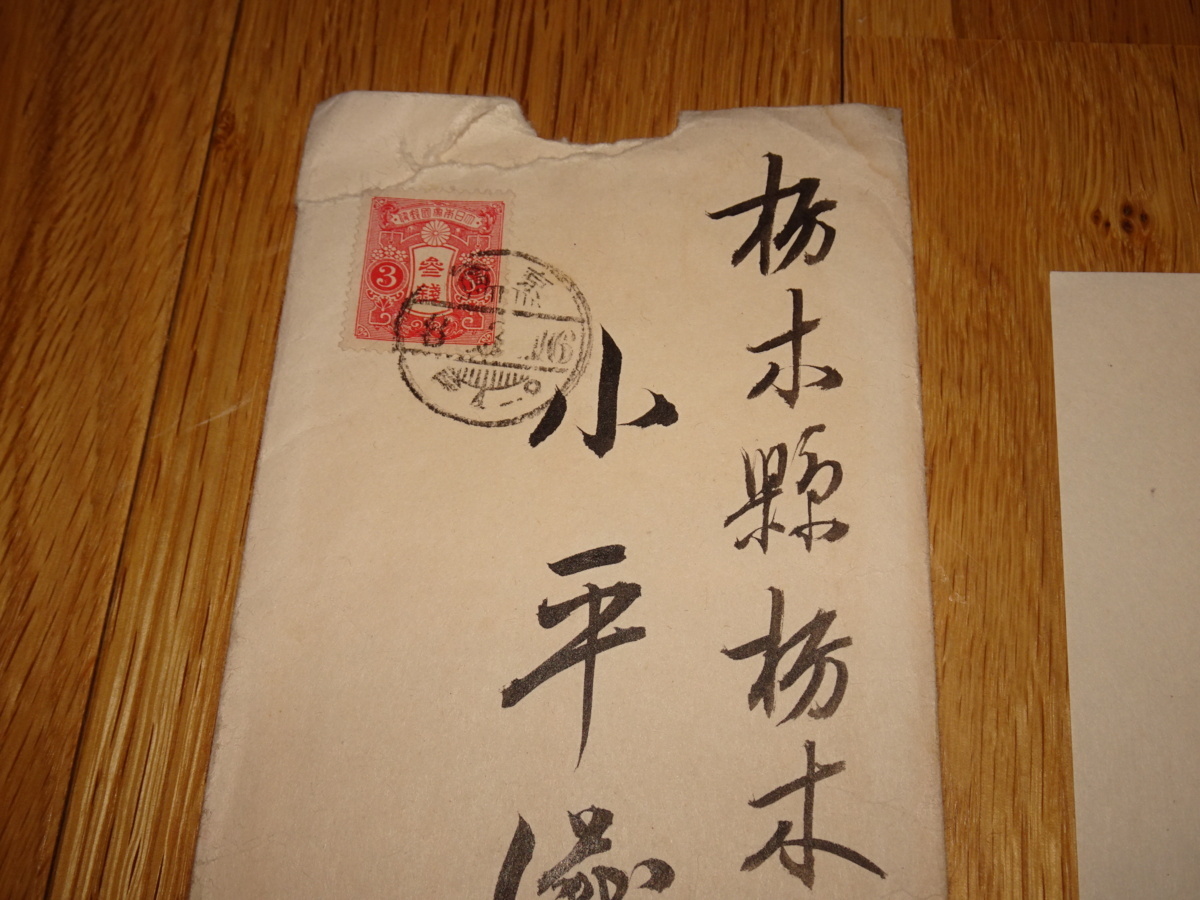 栃木縣栃木
小平
大日本帝國郵便
參錢
3
8.3.16